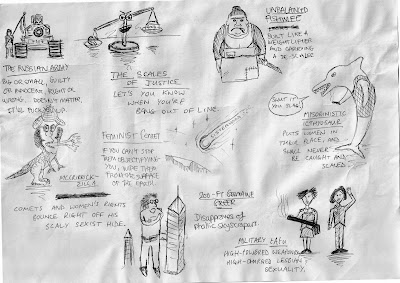 THE RUSSIAN ARMY
BIG OR SMALL, GUILTY
OR INNOCENT, RIGHT OR
WRONG, DOESN'T MATTER,
STILL FUCK YOU UP.
THE SCALES
OF JUSTICE
LET'S YOU KNOW
WHEN YOU'RE
BANG OUT OF LINE
UNBALANCED
FISHWIFE
BUILT LIKE A
WEIGHTLIFTER
AND CARRYING
A DE-SCALER
SHUT IT
YOU SLAG!
MISOGYNISTIC
ICTHYOSAUR
PUTS WOMEN IN
THEIR PLACE, AND
SHALL NEVER
BE CAUGHT AND
SCALED.
FEMINIST COMET
IF YOU CAN'T STOP
THEM OBJECTIFYING
YOU, WIPE THEM
FROM THE SURFACE
OF THE EARTH.
MCCRIRRICK-
ZILLA
COMETS AND WOMEN'S RIGHTS
BOUNCE RIGHT OFF HIS
SCALY SEXIST HIDE.
200-FT GERMAINE
GREER
Disapproves of
phallic skyscrapers.
MILITARY
HIGH-POWERED WEAPONRY,
HIGH-CHARGED LESBIAN
SEXUALITY.